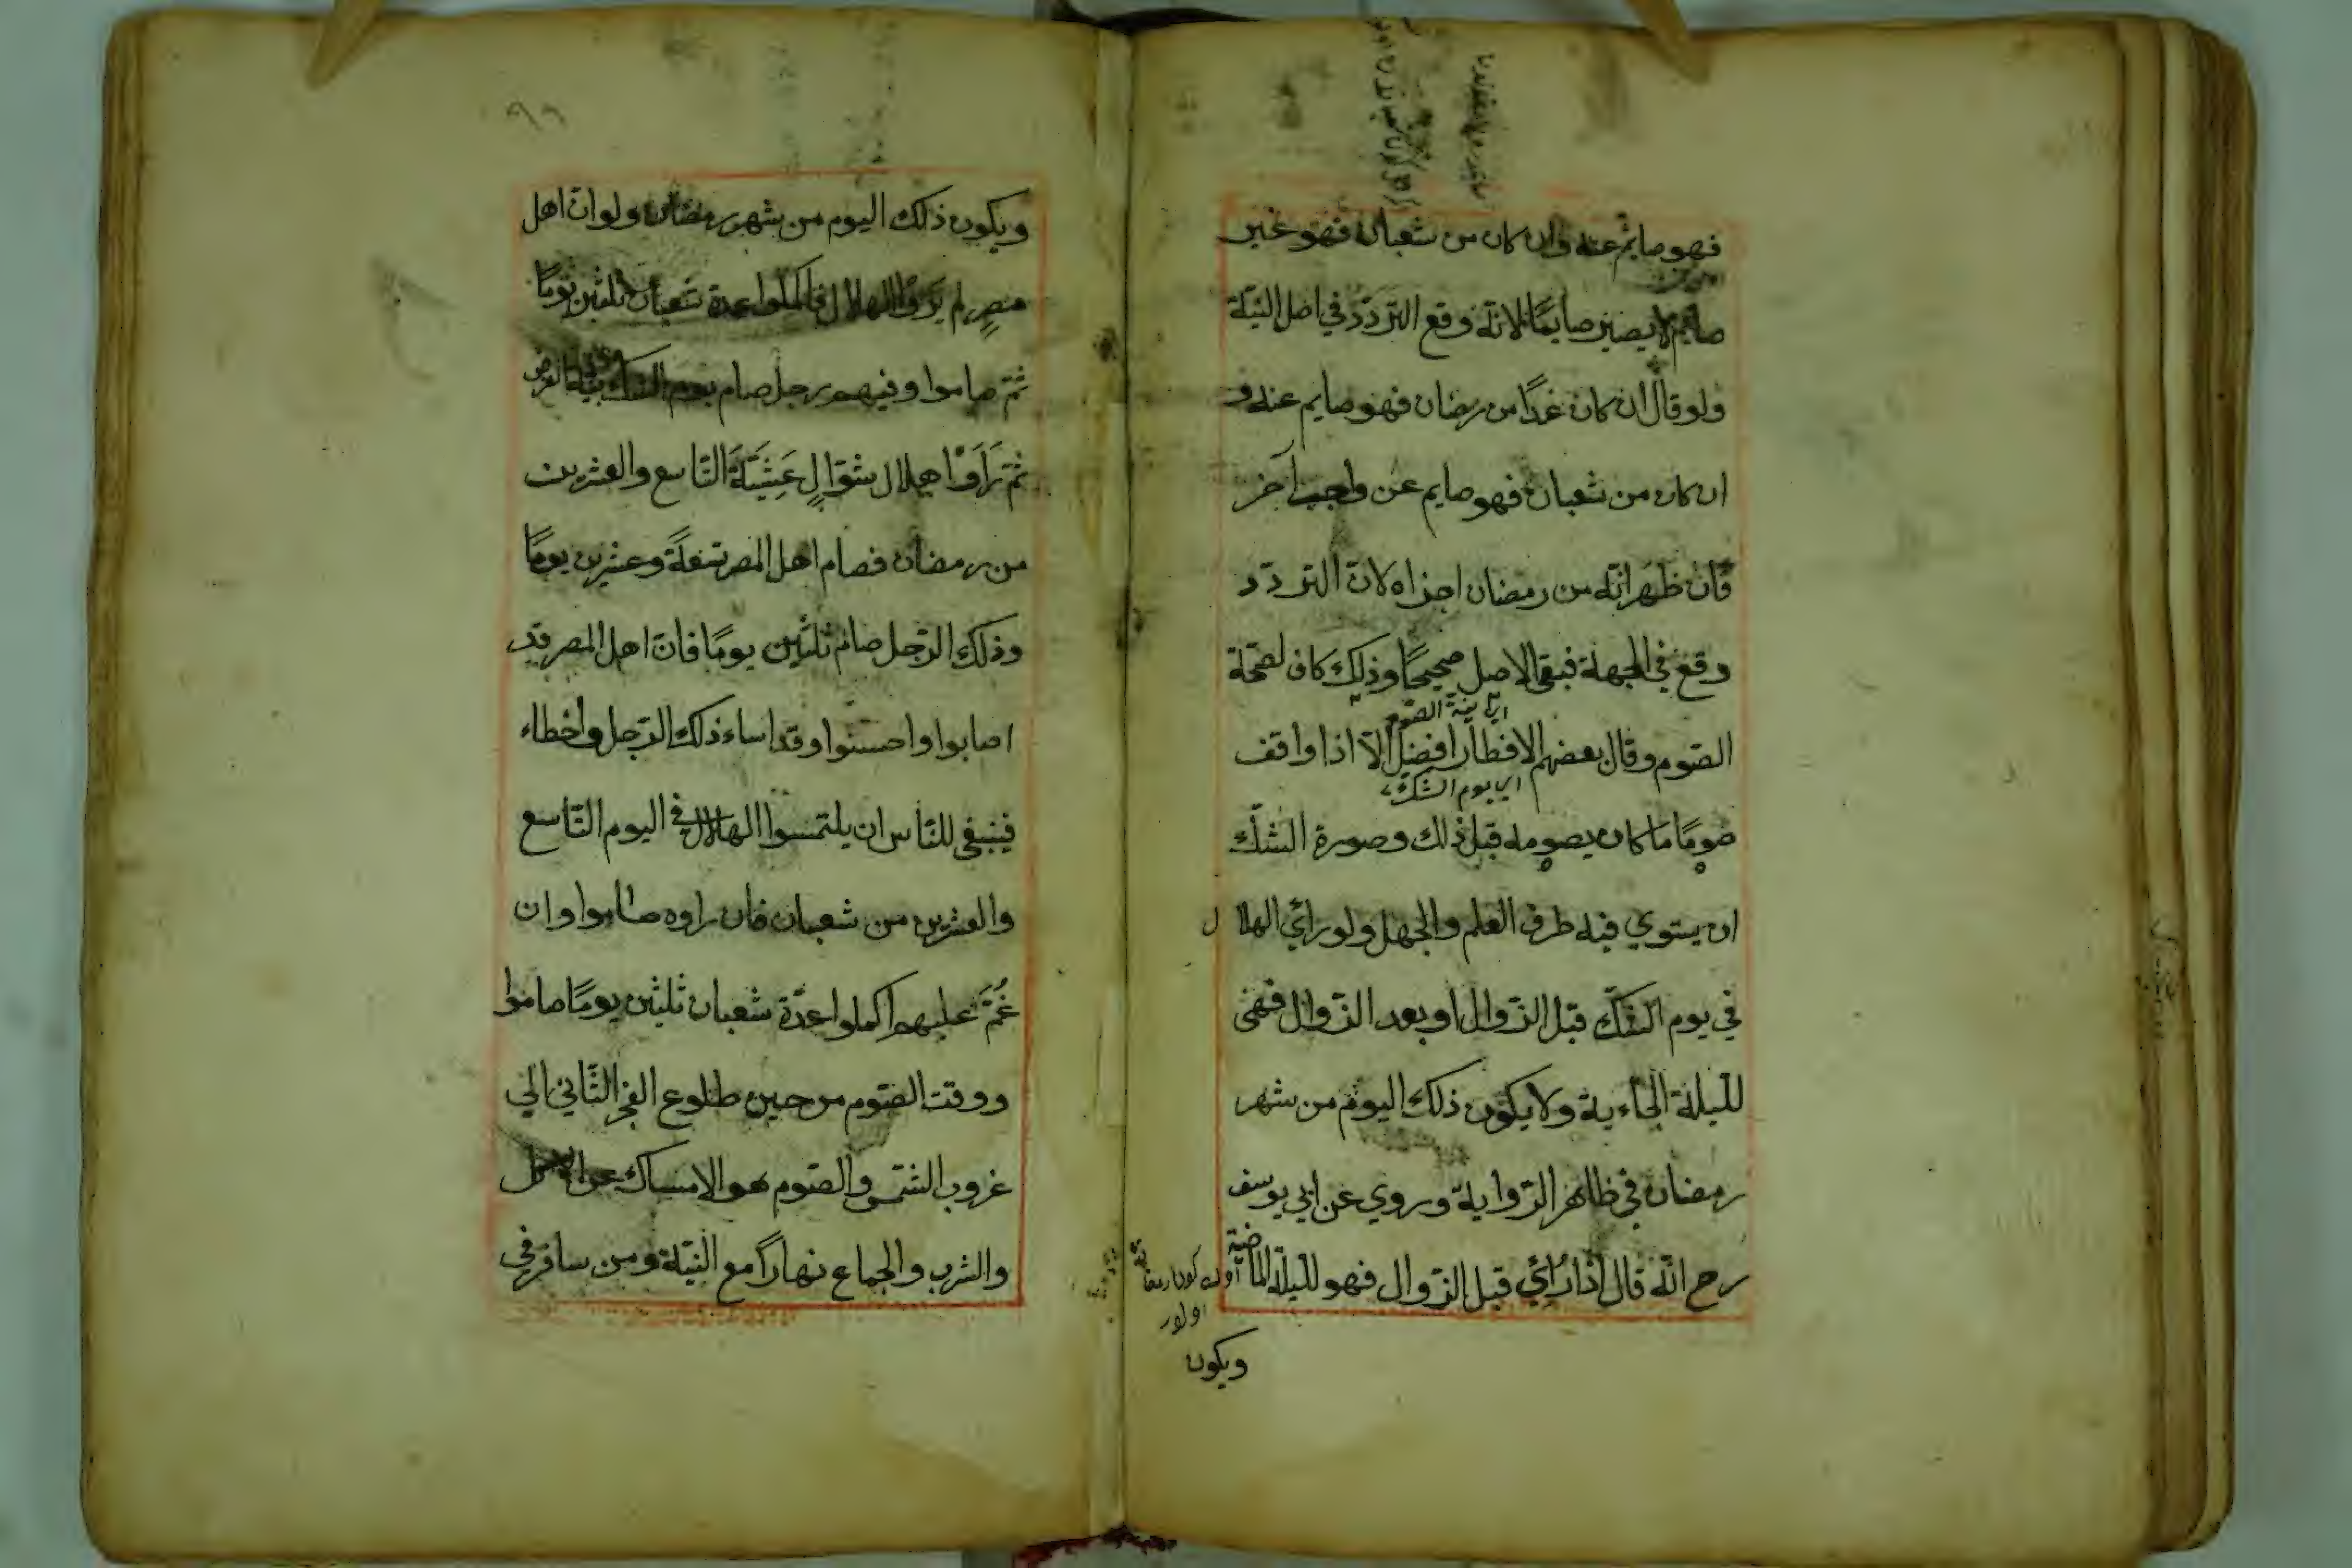 فهو صايم عنه وان كان من شعبان فهو غير
صايم لا يصير صايمًا لانّه وقع التردّد في اصل النيّة
ولو قال ان كان غدًا من رمضان فهو صايم عنه و
ان كان من شعبان فهو صايم عن واجب آخر
فان ظهر انّه من رمضان اجزاه لانّ التردّد
وقع في الجهة فبقى الاصل صحيحًا وذلك كاف لصحّة
اي نية الصّوم
الصّوم وقال بعضهم الافطار افضل الّا اذا وافق
اي يوم الشك
صومًا ما كان يصومه قبل ذلك وصورة الشّكّ
ان يستوي فيه طرف العلم والجهل ولو رأي الهلال
في يوم الشّكّ قبل الزّوال او بعد الزّوال فهى
للّيلة الجاءية ولا يكون ذلك اليوم من شهر
رمضان في ظاهر الرّواية وروي عن ابي يوسف
رح انّه قال اذا رُأي قبل الزّوال فهو للّيلة الماضية
ويكون
٩٩
ويكون ذلك اليوم من شهر رمضان ولو انّ اهل
مصرٍ لم يَرَوُا الهلال فاكملوا عدة شعبان ثلثين يومًا
ثمّ صاموا وفيهم رجل صام يوم الشك بنيّة الفرض
ثمّ رَأَوْا هلال شوّالٍ عَشِيَّةَ التّاسع والعشرين
من رمضان فصام اهل المصر تسعةً وعشرين يومًا
وذلك الرّجل صائم ثلثين يومًا فانّ اهل المصر قد
اصابوا واحسنوا وقد اساء ذلك الرّجل واخطاء
فينبغى للنّاس ان يلتمسوا الهلال في اليوم التّاسع
والعشرين من شعبان فان راوه صاموا وان
غُمَّ عليهم اكملوا عدّة شعبان ثلثين يومًا صاموا
ووقت الصّوم من حين طلوع الفجر الثّاني الي
غروب الشّمس والصّوم هو الامساك عن الاكل
والشرب والجماع نهارًا مع النّيّة ومن سافر في